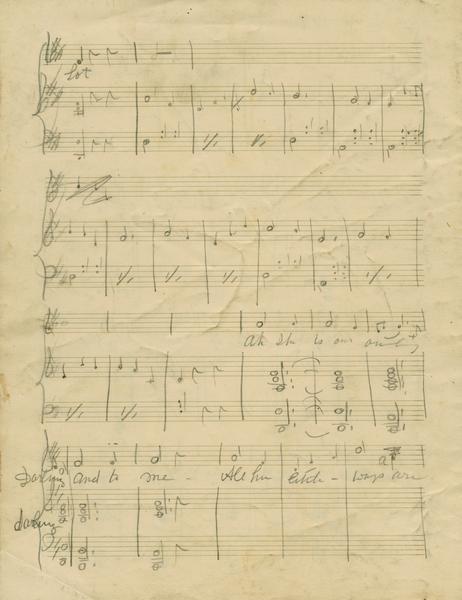 lot
Ah She is our only
Darling and to me - All her little - ways are
darling